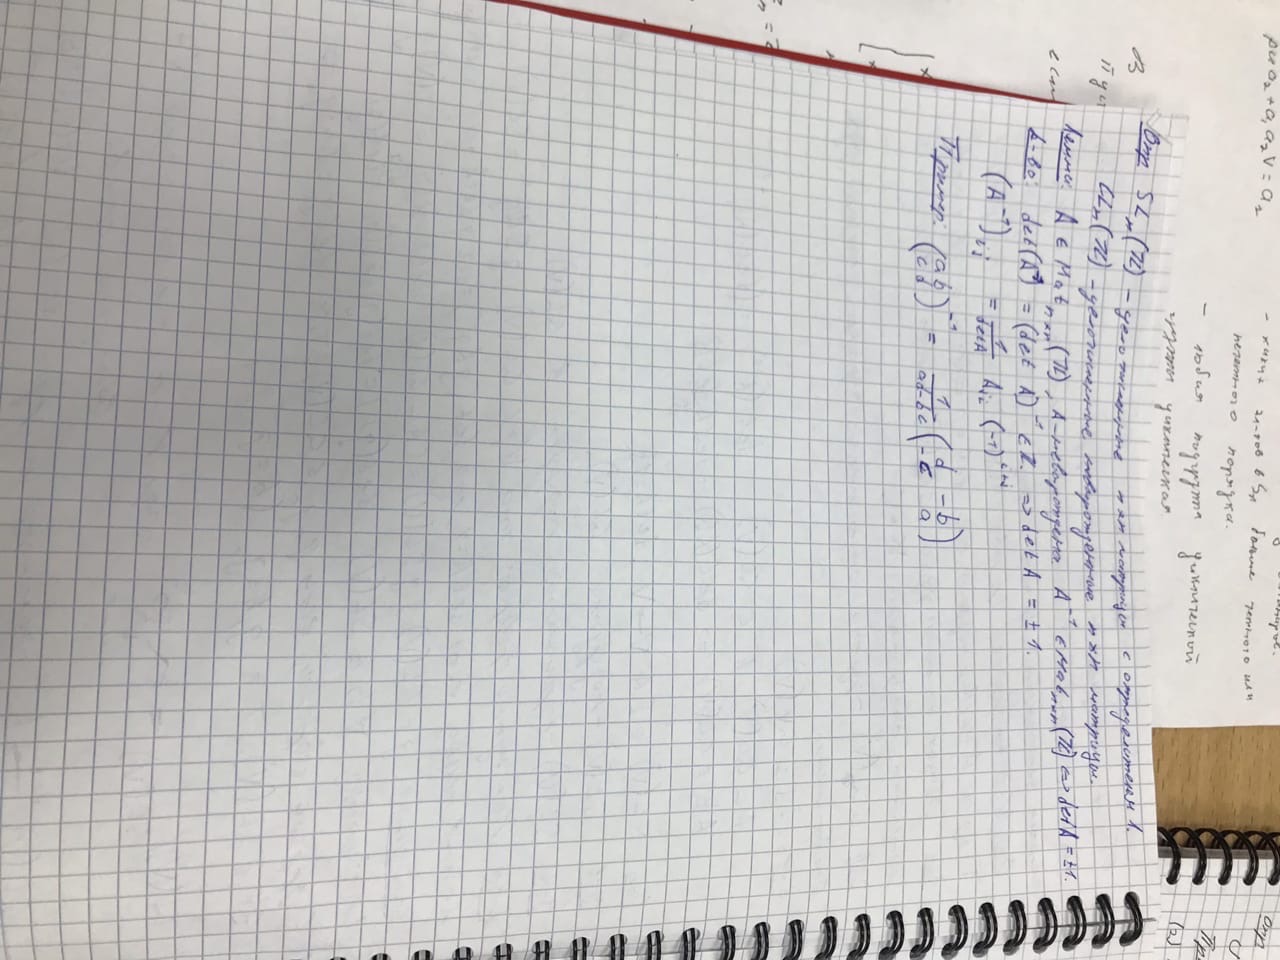 ри a₂ + a₁ a₂ V = a₂
- каких эл-тов в Sₙ больше четного или
нечетного порядка.
- любая подгруппа циклической
группы циклическая
В
Пус
ест
Опр
Опр SLₙ(ℤ) – целочисленные n×n матрицы с определителем 1.
GLₙ(ℤ) – целочисленные невырожденные n×n матрицы.
Лемма: A ∈ Matₙₓₙ(ℤ), A – невырождена. A⁻¹ ∈ Matₙₓₙ(ℤ) ⇔ det A = ±1.
Д-во: det(A⁻¹) = (det A)⁻¹ ∈ ℤ. ⇒ det A = ±1.
(A⁻¹)ᵢⱼ = 1/det A Aⱼᵢ (-1)ⁱ⁺ʲ
Пример: (a b; c d)⁻¹ = 1/(ad-bc) (d -b; -c a)